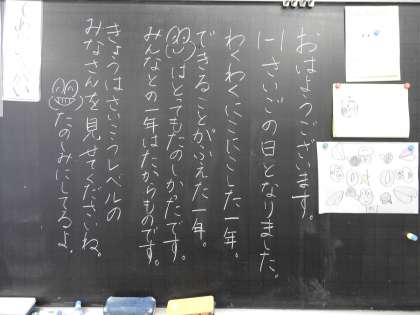 おはようございます。
1-1さいごの日となりました。
わくわくにこにこした一年。
できることがふえた一年。
はとてもたのしかったです。
みんなとの一年はたからものです。
きょうはさいこうレベルの
みなさんを見せてくださいね。
たのしみにしてるよ。